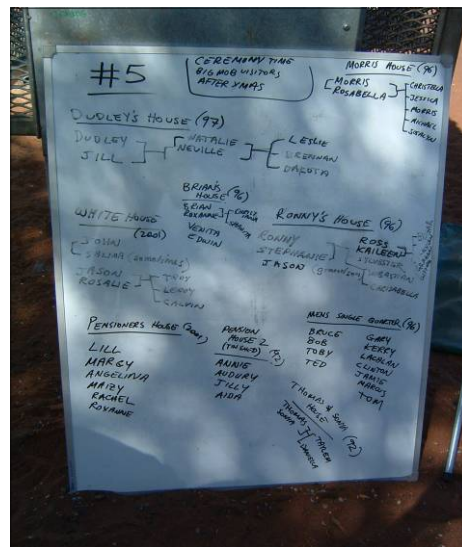 #5
CEREMONY TIME
BIG MOB VISITORS
AFTER XMAS
MORRIS HOUSE (96)
MORRIS
ROSABELLA
CHRISTELLA
JESSICA
MORRIS
MICHAEL
DUDLEY'S HOUSE (97)
DUDLEY
JILL
NATALIE
NEVILLE
LESLIE
BRENNAN
DAKOTA
BRIAN'S
HOUSE (96)
BRIAN
ROXANNE
VENITA
EDWIN
WHITE HOUSE
(2001)
JOHN
(sometimes)
JASON
ROSALIE
TROY
LEROY
CALVIN
RONNY'S HOUSE (96)
RONNY
STEPHANIE
JASON (grandson)
ROSS
KAILEEN
SYLVESTER
SEBASTIAN
PENSIONERS HOUSE (2001)
LILL
MARGY
ANGELINA
MAIZY
RACHEL
ROXANNE
PENSION
HOUSE 2
ANNIE
AUDURY
JILLY
AIDA
MENS SINGLE QUARTER (96)
BRUCE
BOB
TOBY
TED
GARY
KERRY
LACHLAN
CLINTON
JAMIE
MARCUS
TOM
THOMAS & SONIA
HOUSE (92)
THOMAS
SONIA